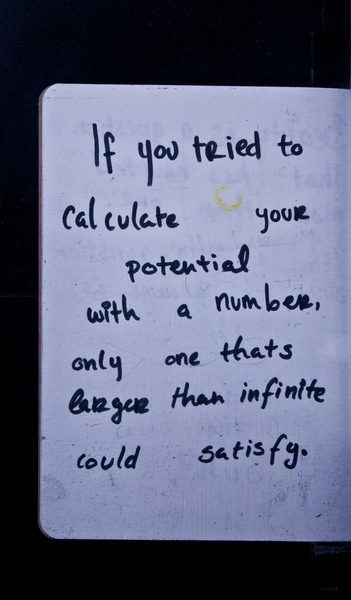 If you tried to
calculate your
potential
with a number,
only one thats
larger than infinite
could satisfy.